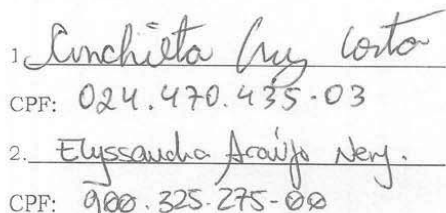 1 Anchieta Cruz Costa
CPF: 024.470.435-03
2. Elyssandra Araújo Nery.
CPF: 900.325.275-00